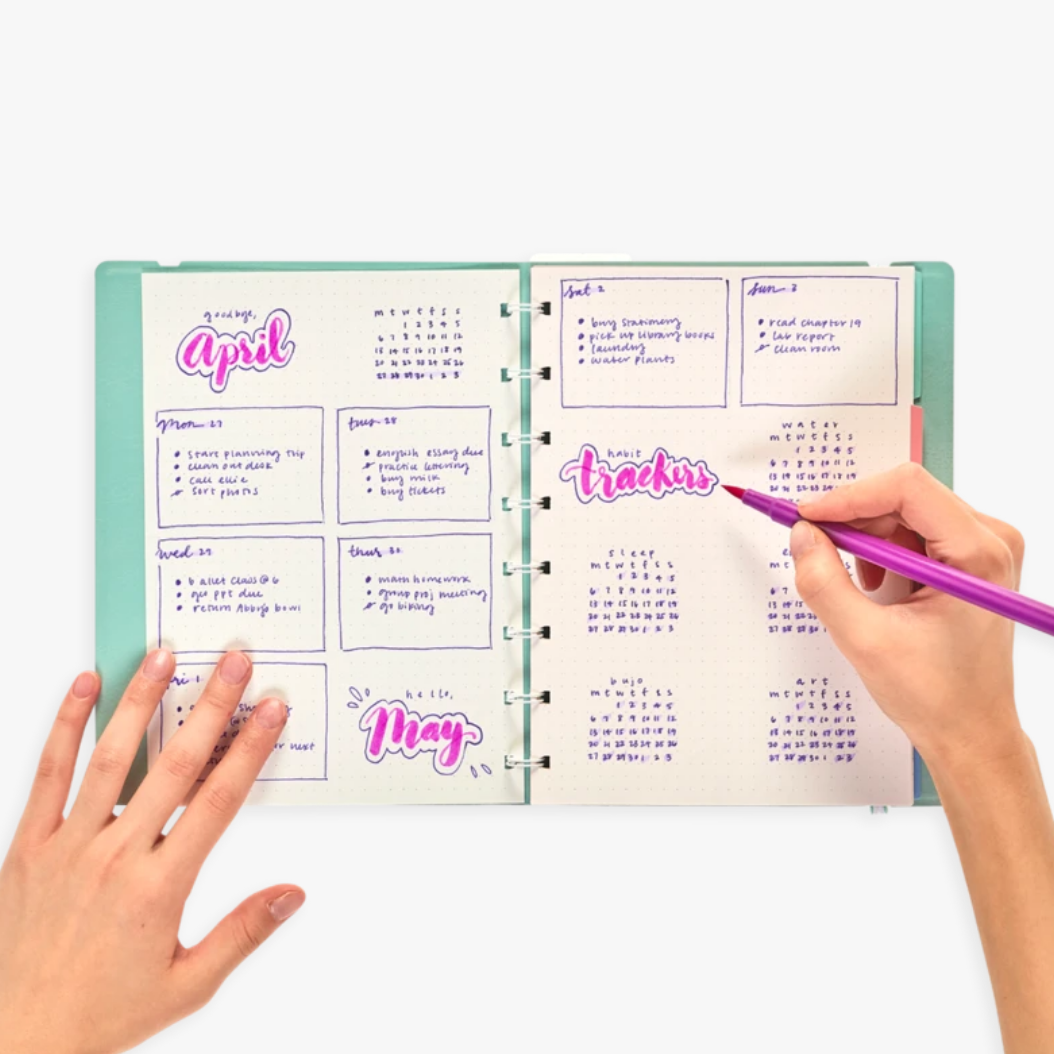 goodbye,
April
m t w t f s s
1 2 3 4 5
6 7 8 9 10 11 12
13 14 15 16 17 18 19
20 21 22 23 24 25 26
27 28 29 30 1 2 3
mon 27
start planning trip
clean out desk
call ellie
sort photos
tues 28
english essay due
practice lettering
buy milk
buy tickets
wed 29
ballet class @ 6
gov ppt due
return Abby's bowl
thus 30
math homework
group proj meeting
go biking
fri 1
next
hello,
May
sat 2
buy stationery
pick up library books
laundry
water plants
sun 3
read chapter 19
lab report
clean room
habit
trackers
water
m t w t f s s
1 2 3 4 5
6 7 8 9 10 11 12
13 14 15 16 17 18 19
20 21 22 23 24
sleep
m t w t f s s
1 2 3 4 5
6 7 8 9 10 11 12
13 14 15 16 17 18 19
20 21 22 23 24 25 26
27 28 29 30 1 2 3
m t
6 7
13 14
20 21 22 23 24 25 26
27 28 29 30 1
bujo
m t w t f s s
1 2 3 4 5
6 7 8 9 10 11 12
13 14 15 16 17 18 19
20 21 22 23 24 25 26
27 28 29 30 1 2 3
art
m t w t f s s
1 2 3 4 5
6 7 8 9 10 11 12
13 14 15 16 17 18 19
20 21 22 23 24 25 26
27 28 29 30 1 2 3